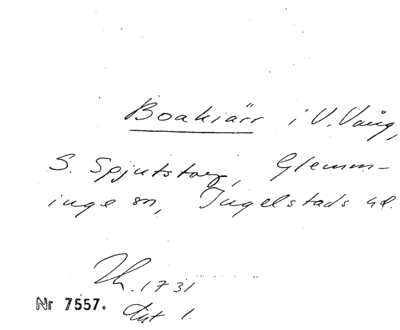 Boakiärr i V. Vång,
S. Spjutstorp, Glemm-
inge sn, Ingelstads hd.
1731
Nr 7557.
1.